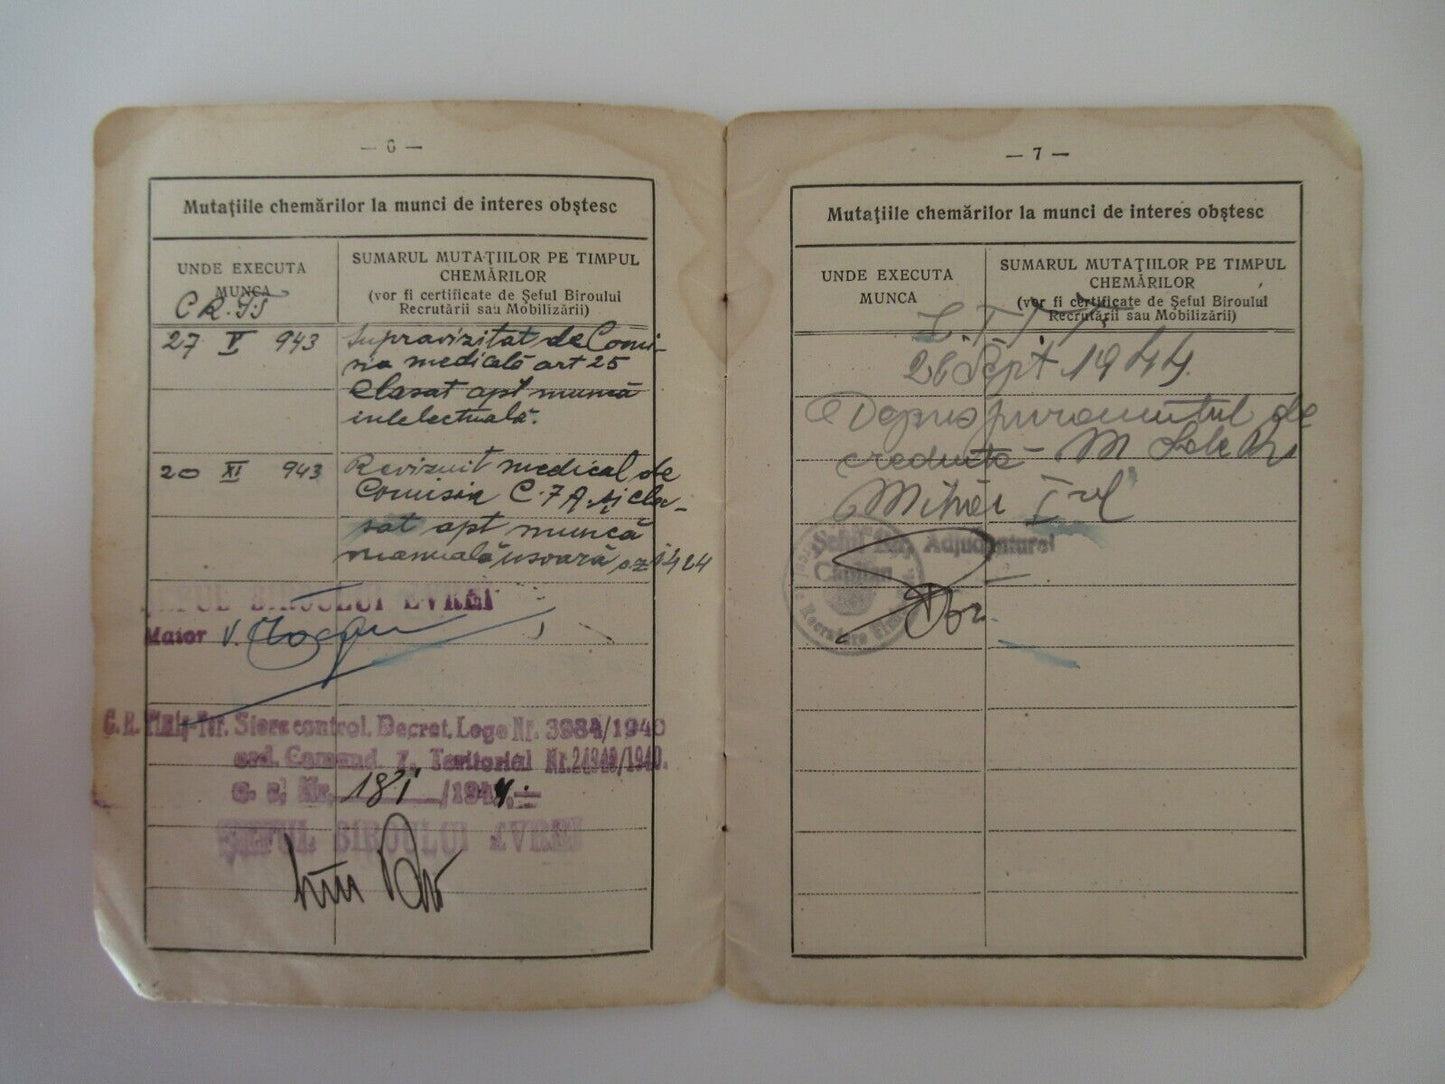 — 6 —
Mutațiile chemărilor la munci de interes obștesc
UNDE EXECUTA
MUNCA
SUMARUL MUTAȚIILOR PE TIMPUL
CHEMĂRILOR
(vor fi certificate de Șeful Biroului
Recrutării sau Mobilizării)
27 V 943
Supravizitat de Comi-
sia medicală art 25
Clasat apt muncă
intelectuală.
20 XI 943
Revizuit medical de
Comisia și cla-
sat apt muncă
manuală ușoară
BIROULUI EVREI
Maior V.
C. R. Timiș-Tor. Siera control. Decret. Lege Nr. 3984/1940
ord. Comand. 7. Teritorial Nr. 24340/1940.
Nr. 181 /194
ȘEFUL BIROULUI EVREI
— 7 —
Mutațiile chemărilor la munci de interes obștesc
UNDE EXECUTA
MUNCA
SUMARUL MUTAȚIILOR PE TIMPUL
CHEMĂRILOR
(vor fi certificate de Șeful Biroului
Recrutării sau Mobilizării)
26 Sept. 1944.
Depus jurământul de
credință M
Mihai I
Adjudanturei